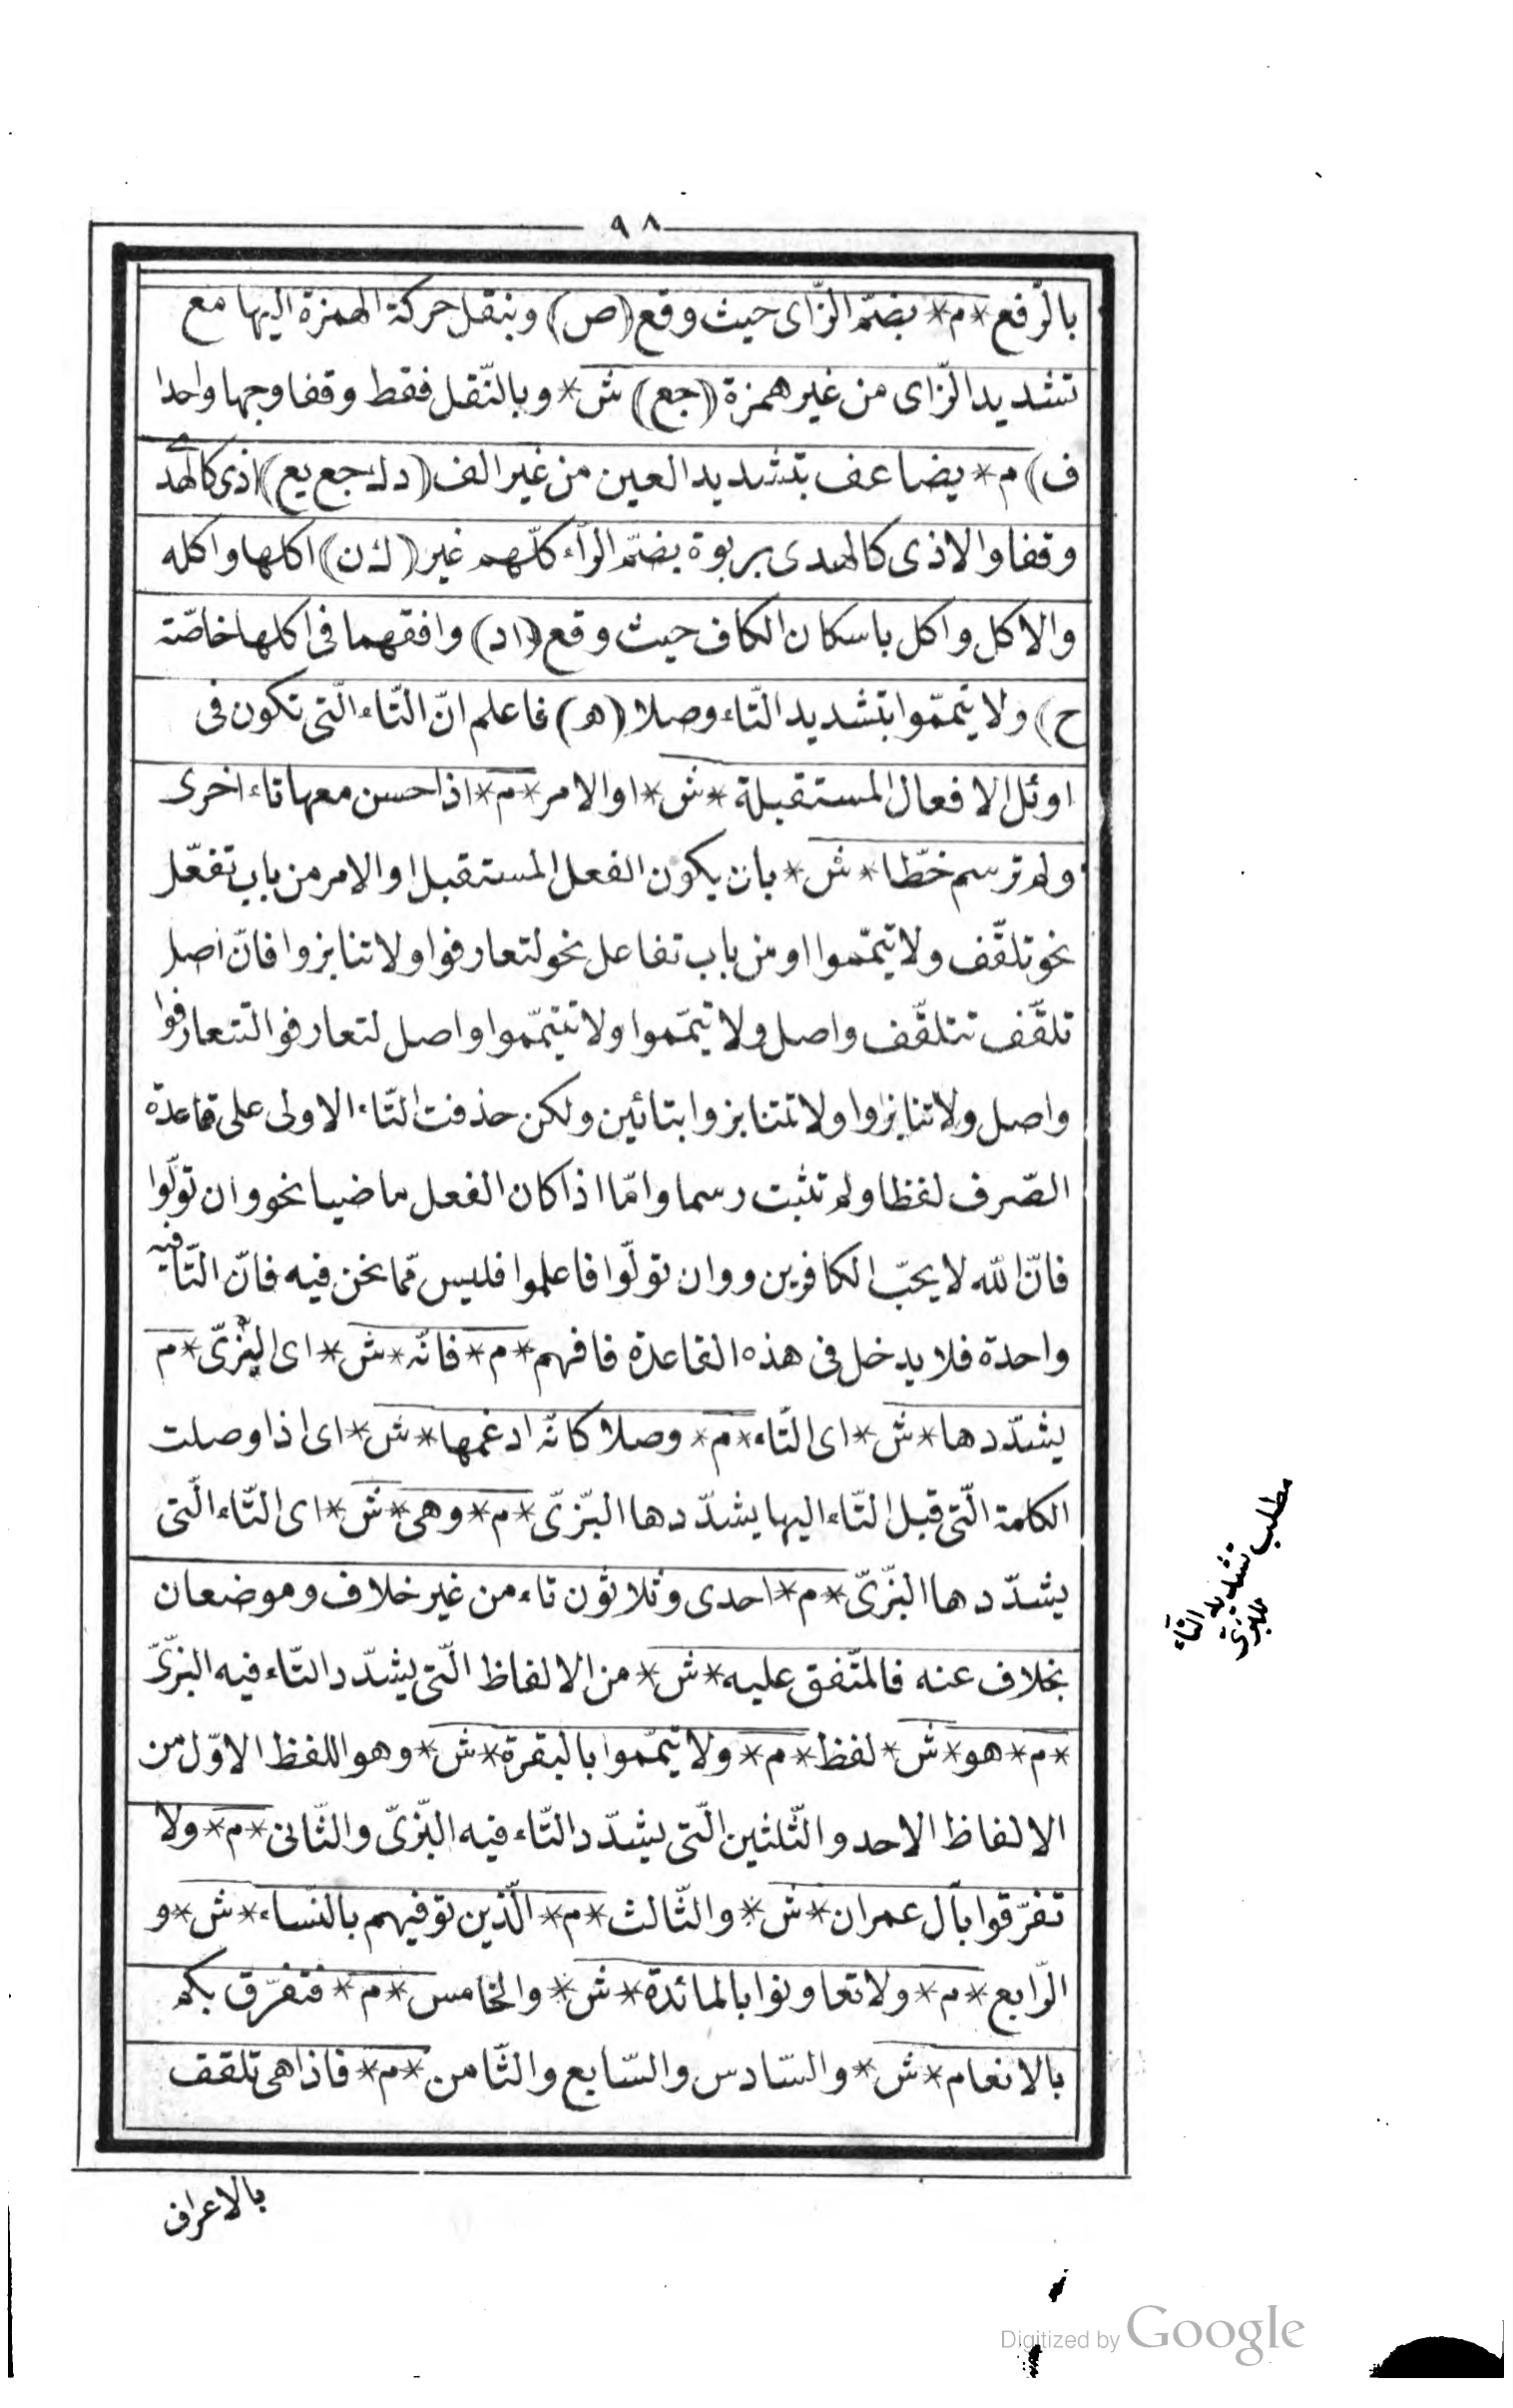 ٩٨
بالرّفع *م* بضمّ الزّاى حيث وقع (ص) وبنقل حركة الهمزة اليها مع
تشديد الزّاى من غير همزة (جع) ش* وبالنّقل فقط وقفا وجها واحدا
ف) م* يضاعف بتشديد العين من غير الف (دك جع يع) اذى كالهدى
وقفا والاذى كالهدى بربوة بضمّ الرّاء كلّهم غير (ك ن) اكلها واكله
والاكل واكل باسكان الكاف حيث وقع (اد) وافقهما فى اكلها خاصّة
ح) ولا تيمّموا بتشديد التّاء وصلا (ه) فاعلم انّ التّاء الّتى تكون فى
اوئل الافعال المستقبلة *ش* او الامر *م* اذا حسن معها تاء اخرى
ولم ترسم خطّا *ش* بان يكون الفعل المستقبل او الامر من باب تفعّل
نحو تلقّف ولا تيمّموا او من باب تفاعل نحو لتعارفوا ولا تنابزوا فانّ اصل
تلقّف تتلقّف واصل ولا تيمّموا ولا تتيمّموا واصل لتعارفوا لتتعارفوا
واصل ولا تنابزوا ولا تتنابزوا بتائين ولكن حذفت التّاء الاولى على قاعدة
الصّرف لفظا ولم تثبت رسما وامّا اذا كان الفعل ماضيا نحو وان تولّوا
فانّ الله لا يحبّ الكافرين ووان تولّوا فاعلموا فليس ممّا نحن فيه فانّ التّا فيه
واحدة فلا يدخل فى هذه القاعدة فافهم *م* فانّه *ش* اى البزّىّ *م
يشدّدها *ش* اى التّاء *م* وصلا كانّه ادغمها *ش* اى اذا وصلت
الكلمة الّتى قبل التّاء اليها يشدّدها البزّىّ *م* وهى *ش* اى التّاء الّتى
يشدّدها البزّىّ *م* احدى وثلاثون تاء من غير خلاف وموضعان
بخلاف عنه فالمتّفق عليه *ش* من الالفاظ الّتى يشدّد التّاء فيه البزّىّ
*م* هو *ش* لفظ *م* ولا تيمّموا بالبقرة *ش* وهو اللفظ الاوّل من
الالفاظ الاحد والثّلثين الّتى يشدّد التّاء فيه البزّىّ والثّانى *م* ولا
تفرّقوا بآل عمران *ش* والثّالث *م* الّذين توفيهم بالنّساء *ش* و
الرّابع *م* ولا تعاونوا بالمائدة *ش* والخامس *م* فتفرّق بكم
بالانعام *ش* والسّادس والسّابع والثّامن *م* فاذا هى تلقف
بالاعراف
مطلب تشديد التّاء
للبزىّ
Digitized by Google